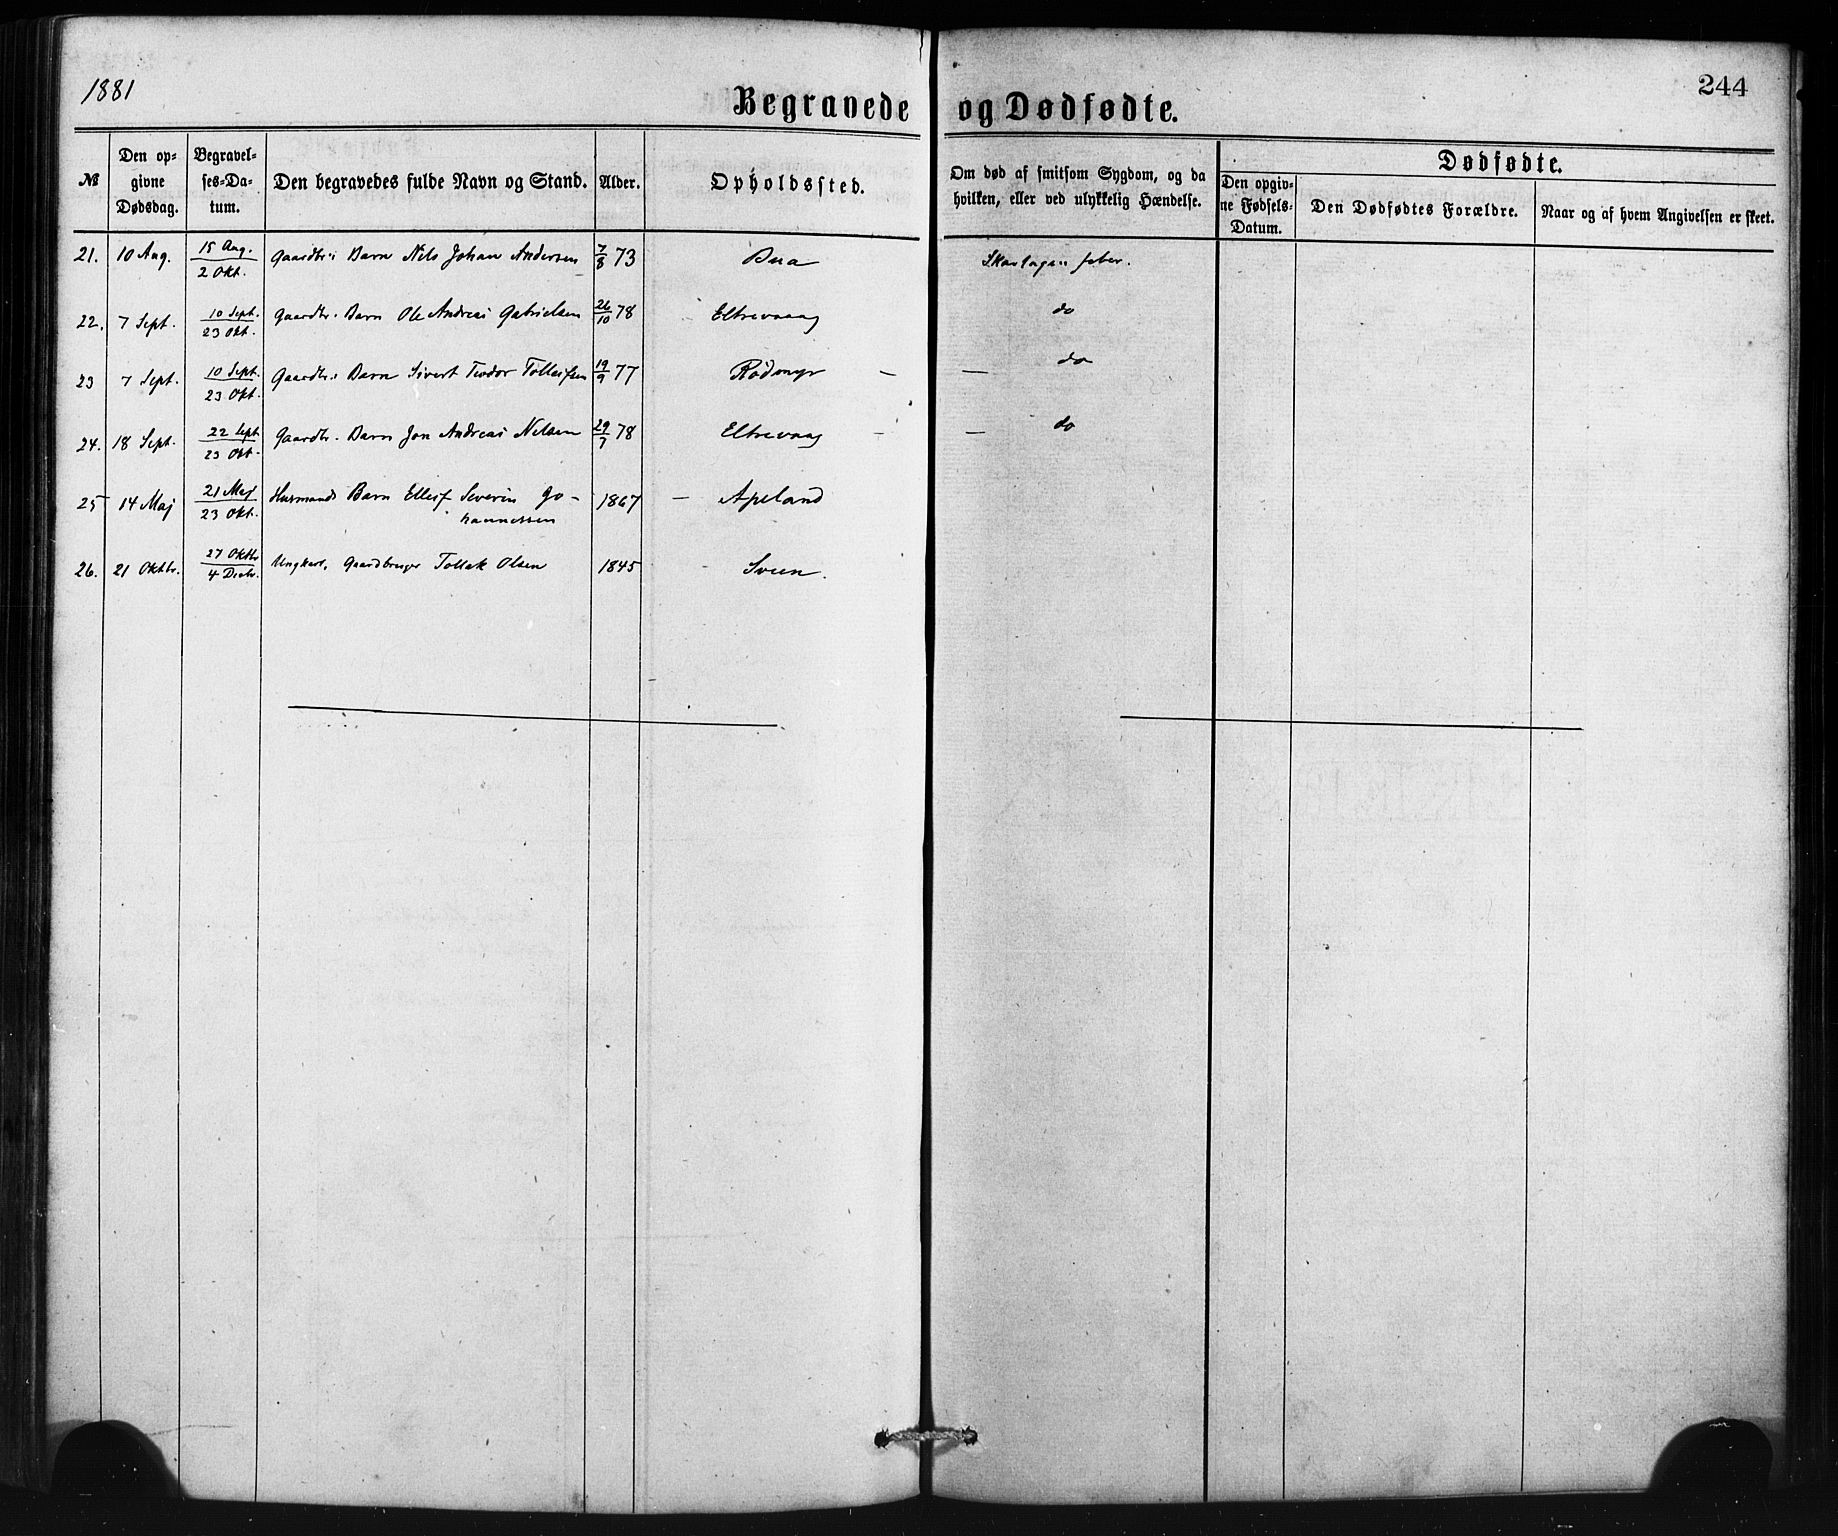 1881
244
Begravede og Dødfødte.
№
Den op-
givne
Dødsdag.
Begravel-
ses-Da-
tum.
Den begravedes fulde Navn og Stand.
Alder.
Opholdssted.
Om død af smitsom Sygdom, og da
hvilken, eller ved ulykkelig Hændelse.
Dødfødte.
Den opgiv-
ne Fødsels-
Datum.
Den Dødfødtes Forældre.
Naar og af hvem Angivelsen er skeet.
21. 10 Aug. 15 Aug. / 2 Okt. Gaardbr: Barn Nels Johan Andersen 7/8 73 Bua Skarlagens feber.
22. 7 Sept. 10 Sept. / 23 Okt. Gaardbr. Barn Ole Andreas Gabrielsen 26/10 78 Eltrevaag do
23 7 Sept. 10 Sept. / 23 Okt. Gaardbr: Barn Sivert Teodor Tolleifsen 19/9 77 Rødmyr — — do
24. 18 Sept. 22 Sept / 23 Okt. Gaardbr. Barn Jon Andreas Nelsen 29/7 78 Eltrevaag — — do
25 14 Maj 21 Maj / 23 Okt. Husmands Barn Ellef Severin Jo- 1867 — Apeland
hannessen
26. 21 Oktbr. 27 Oktbr / 4 Decbr. Ungkarl, Gaardbruger Tollak Olsen 1845 Sveen.